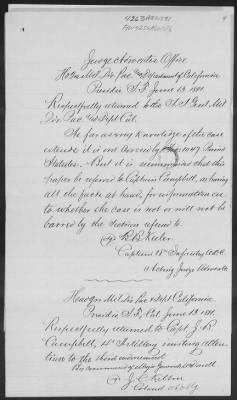 Judge Advocate's Office
Hdqrs Mil. Div. Pac. and Department of California
Presidio S.F. June 13. 1881.
Respectfully returned to the A.A. Genl. Mil.
Div. Pac. and Dept Cal.
So far as my knowledge of the case
extends it is one by Sec. 1047 Revised
Statutes. But it is that this
paper be referred to Captain Campbell, as having
all the facts at hand, for information as
to whether the case is not or will not be
barred by the Section referred to.
Captain 12" Infantry A.D.C.
Acting Judge Advocate
Hdqrs Mil Div Pac & Dept California
Presidio S.F., Cal. June 13. 1881.
Respectfully returned to Capt J. B.
Campbell, 4" Artillery inviting atten
tion to the third indorsement.
By command of Major General McDowell
J. C. Kelton
Colonel A.A.G.